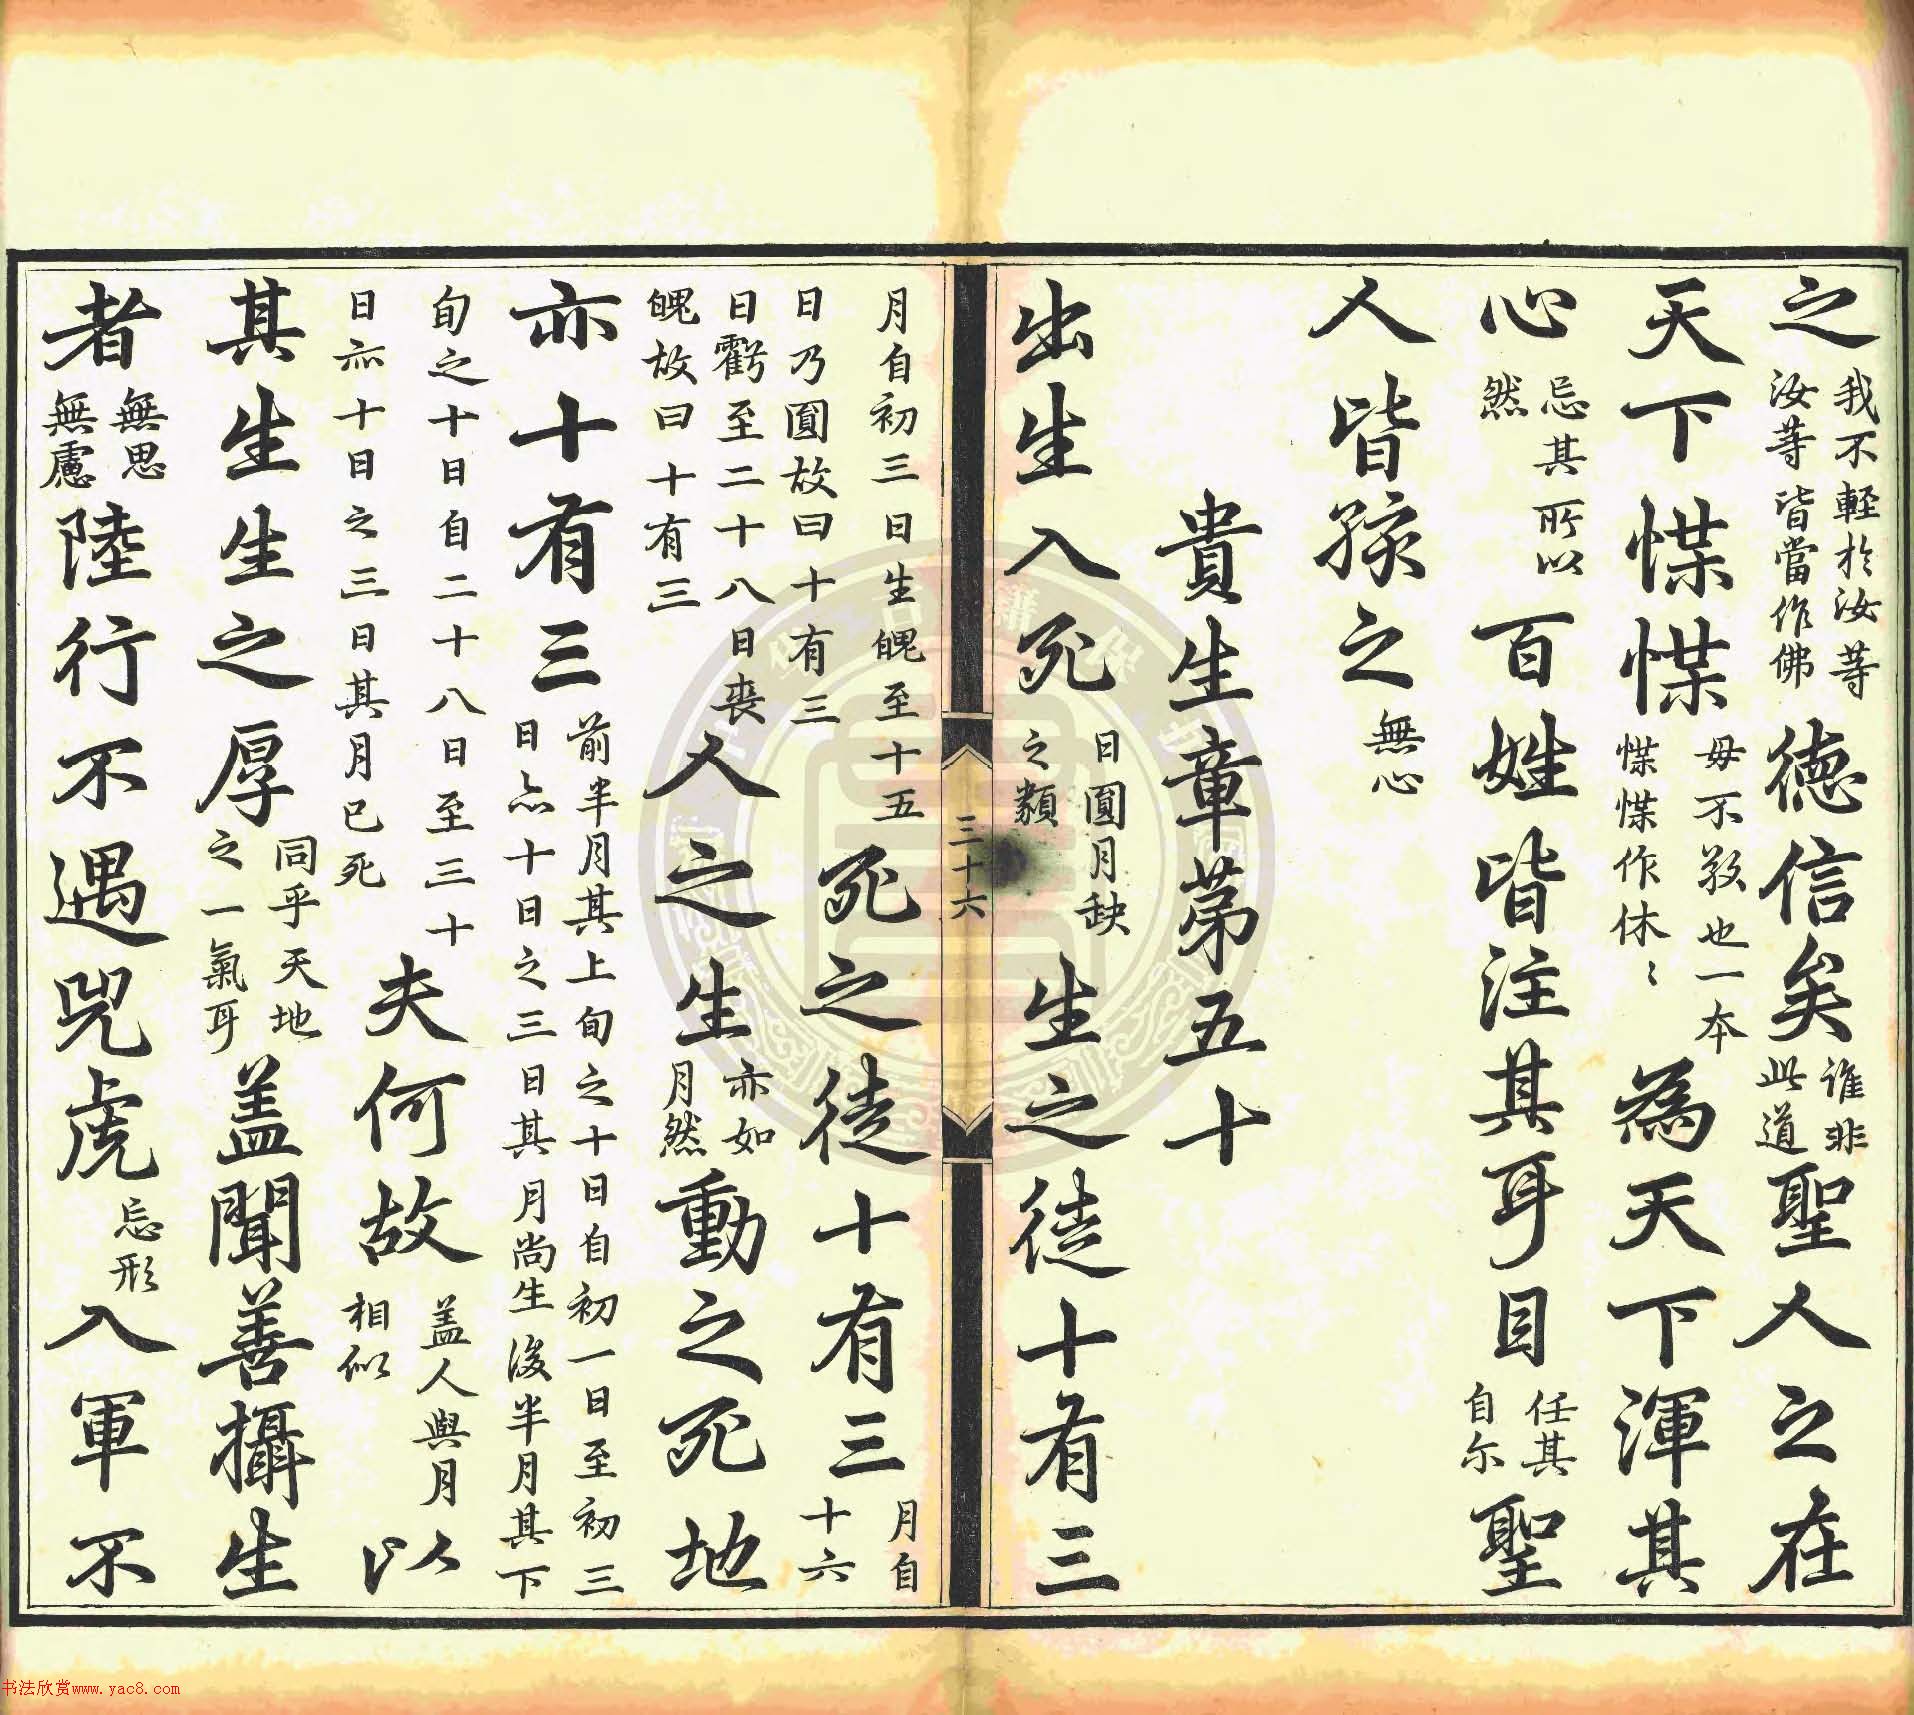 之我不輕於汝等汝等皆當作佛德信矣誰非此道聖人之在
天下惵惵毋不敬也一本惵惵作怵〻為天下渾其
心忌其所以然百姓皆注其耳目任其自尔聖
人皆孩之無心
貴生章第五十
出生入死日圓月缺之類生之徒十有三
月自初三日生魄至十五日乃圓故曰十有三死之徒十有三月自十六
日虧至二十八日喪魄故曰十有三人之生亦如月然動之死地
亦十有三前半月其上旬之十日自初一日至初三日亦十日之三日其月尚生後半月其下
旬之十日自二十八日至三十日亦十日之三日其月已死夫何故盖人與月相似以
其生生之厚同乎天地之一氣耳盖聞善攝生
者無思無慮陸行不遇兕虎忘形入軍不
三十六
书法欣赏www.yac8.com